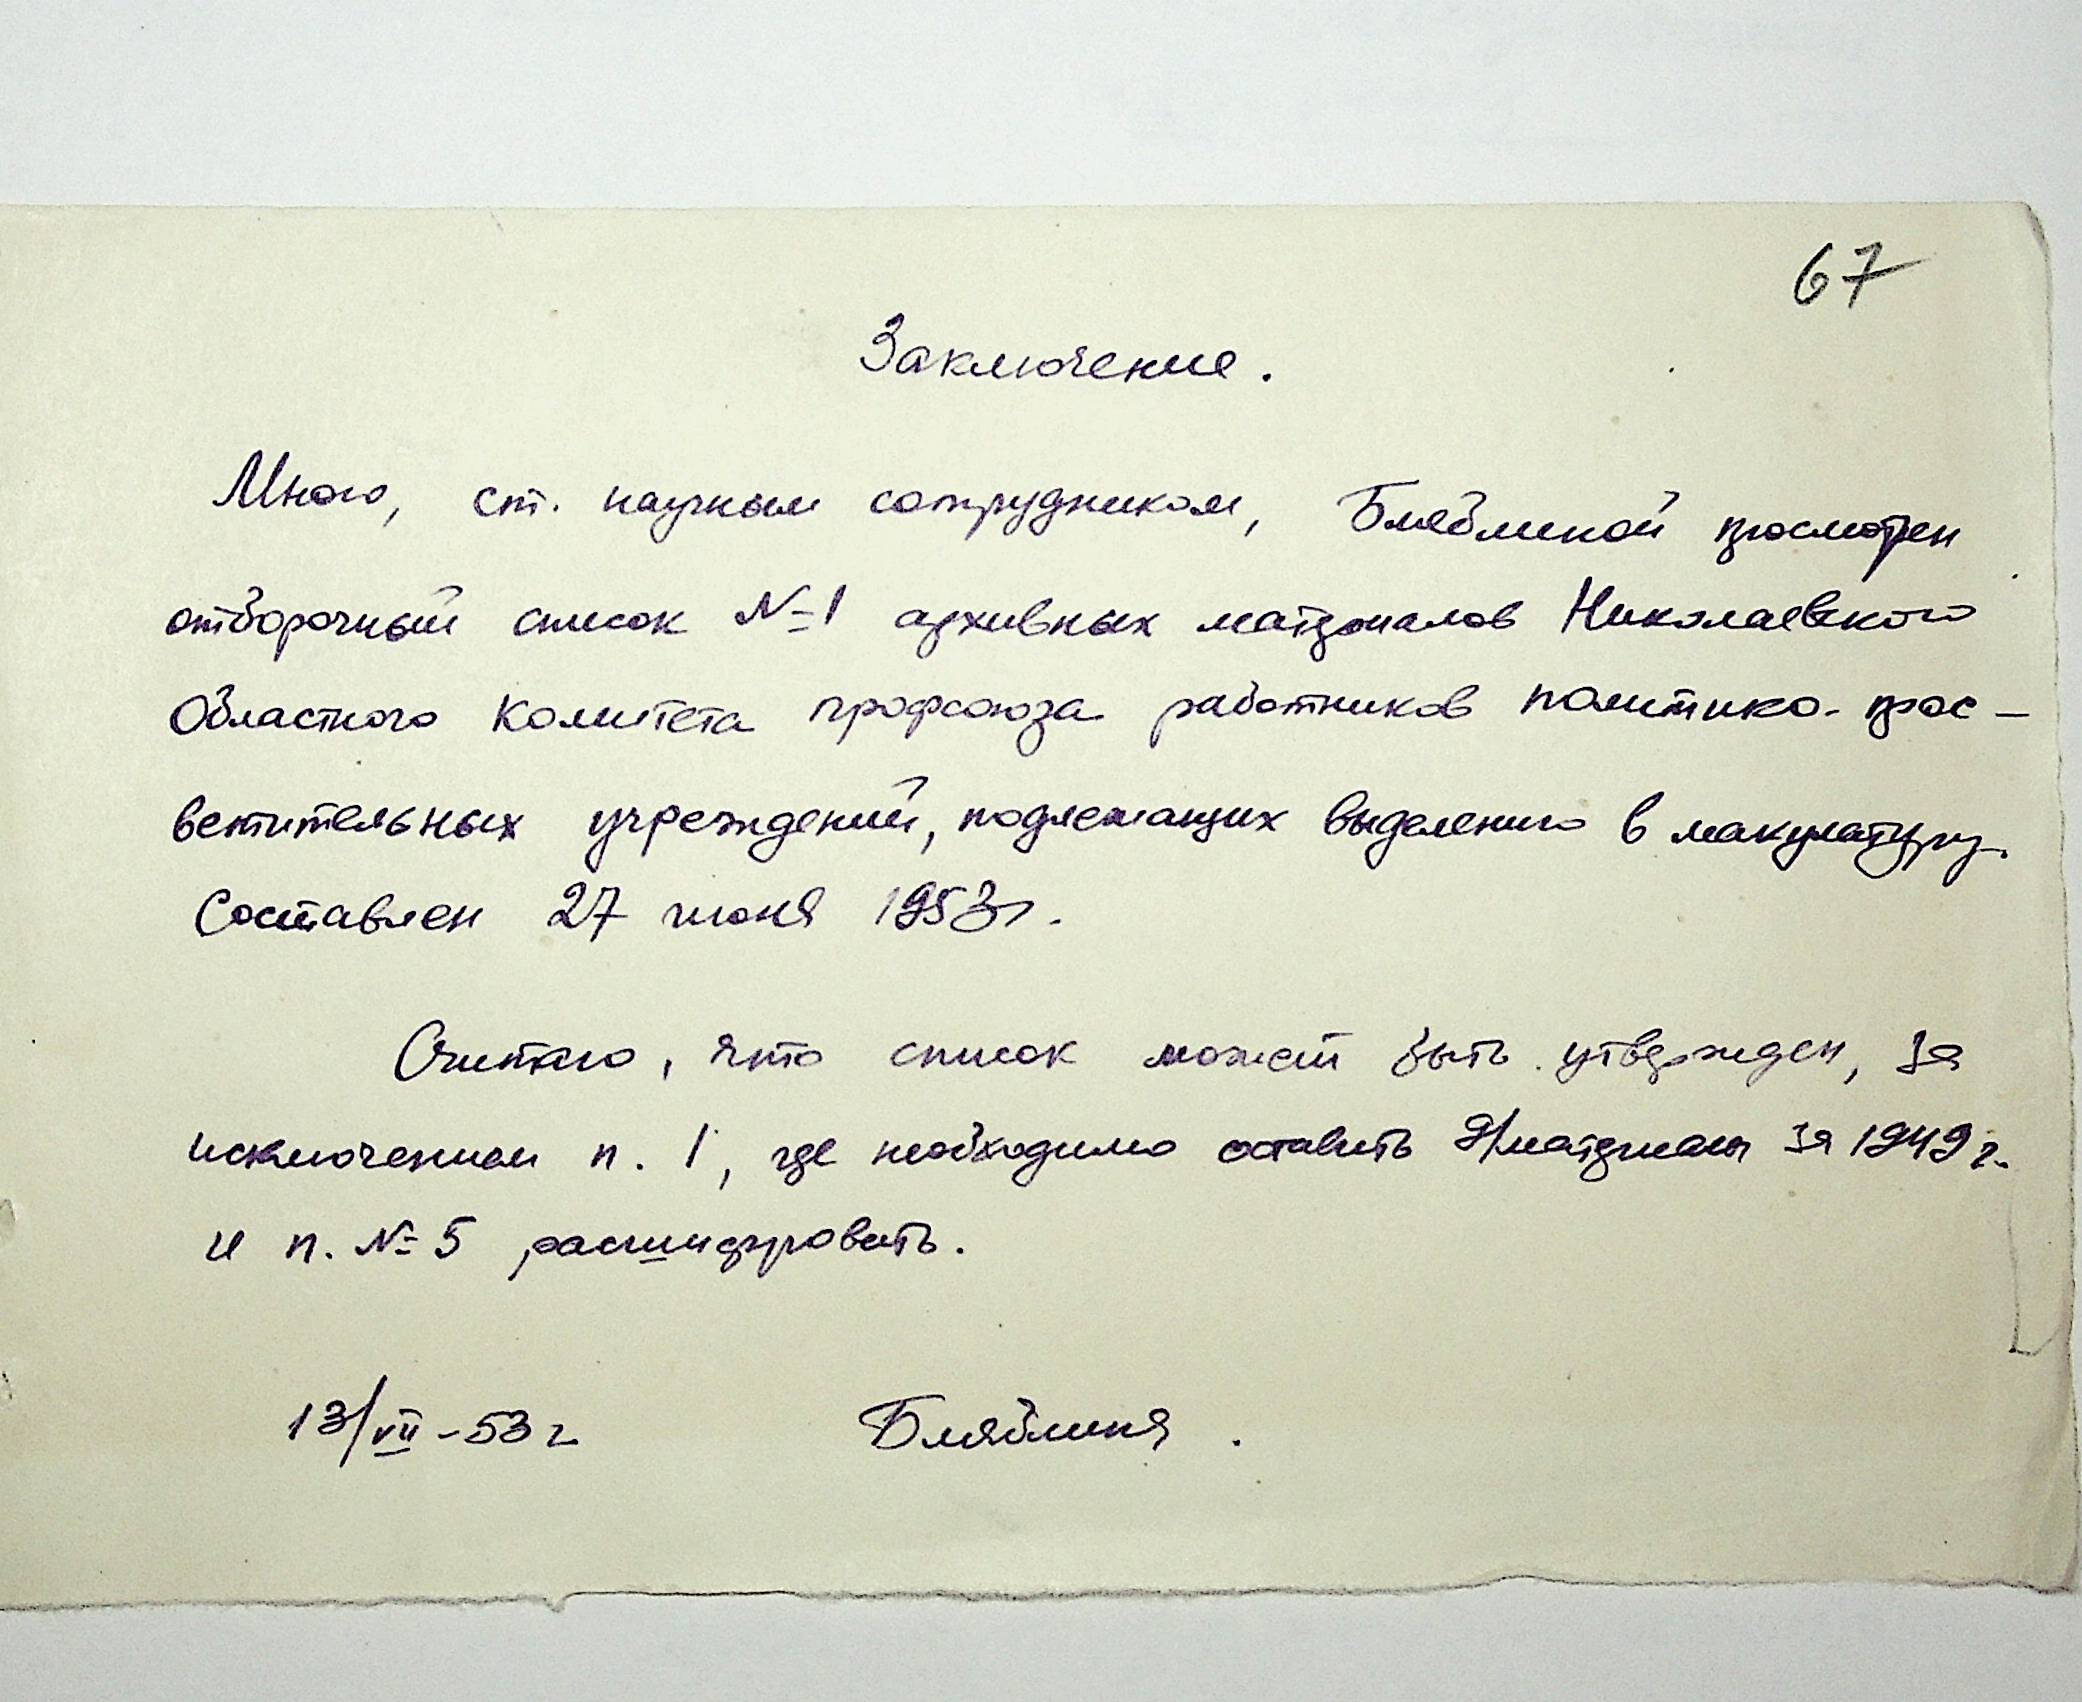 67
Заключение.
Мною, ст. научным сотрудником, Бляблиной просмотрен
отборочный список №1 архивных материалов Николаевского
Областного Комитета профсоюза работников политико-прос-
ветительных учреждений, подлежащих выделению в макулатуру.
Составлен 27 июня 1953г.
Считаю, что список может быть утвержден, за
исключением п. 1, где необходимо оставить материалы за 1949г.
и п. №5 расшифровать.
13/VII-53г Бляблина.